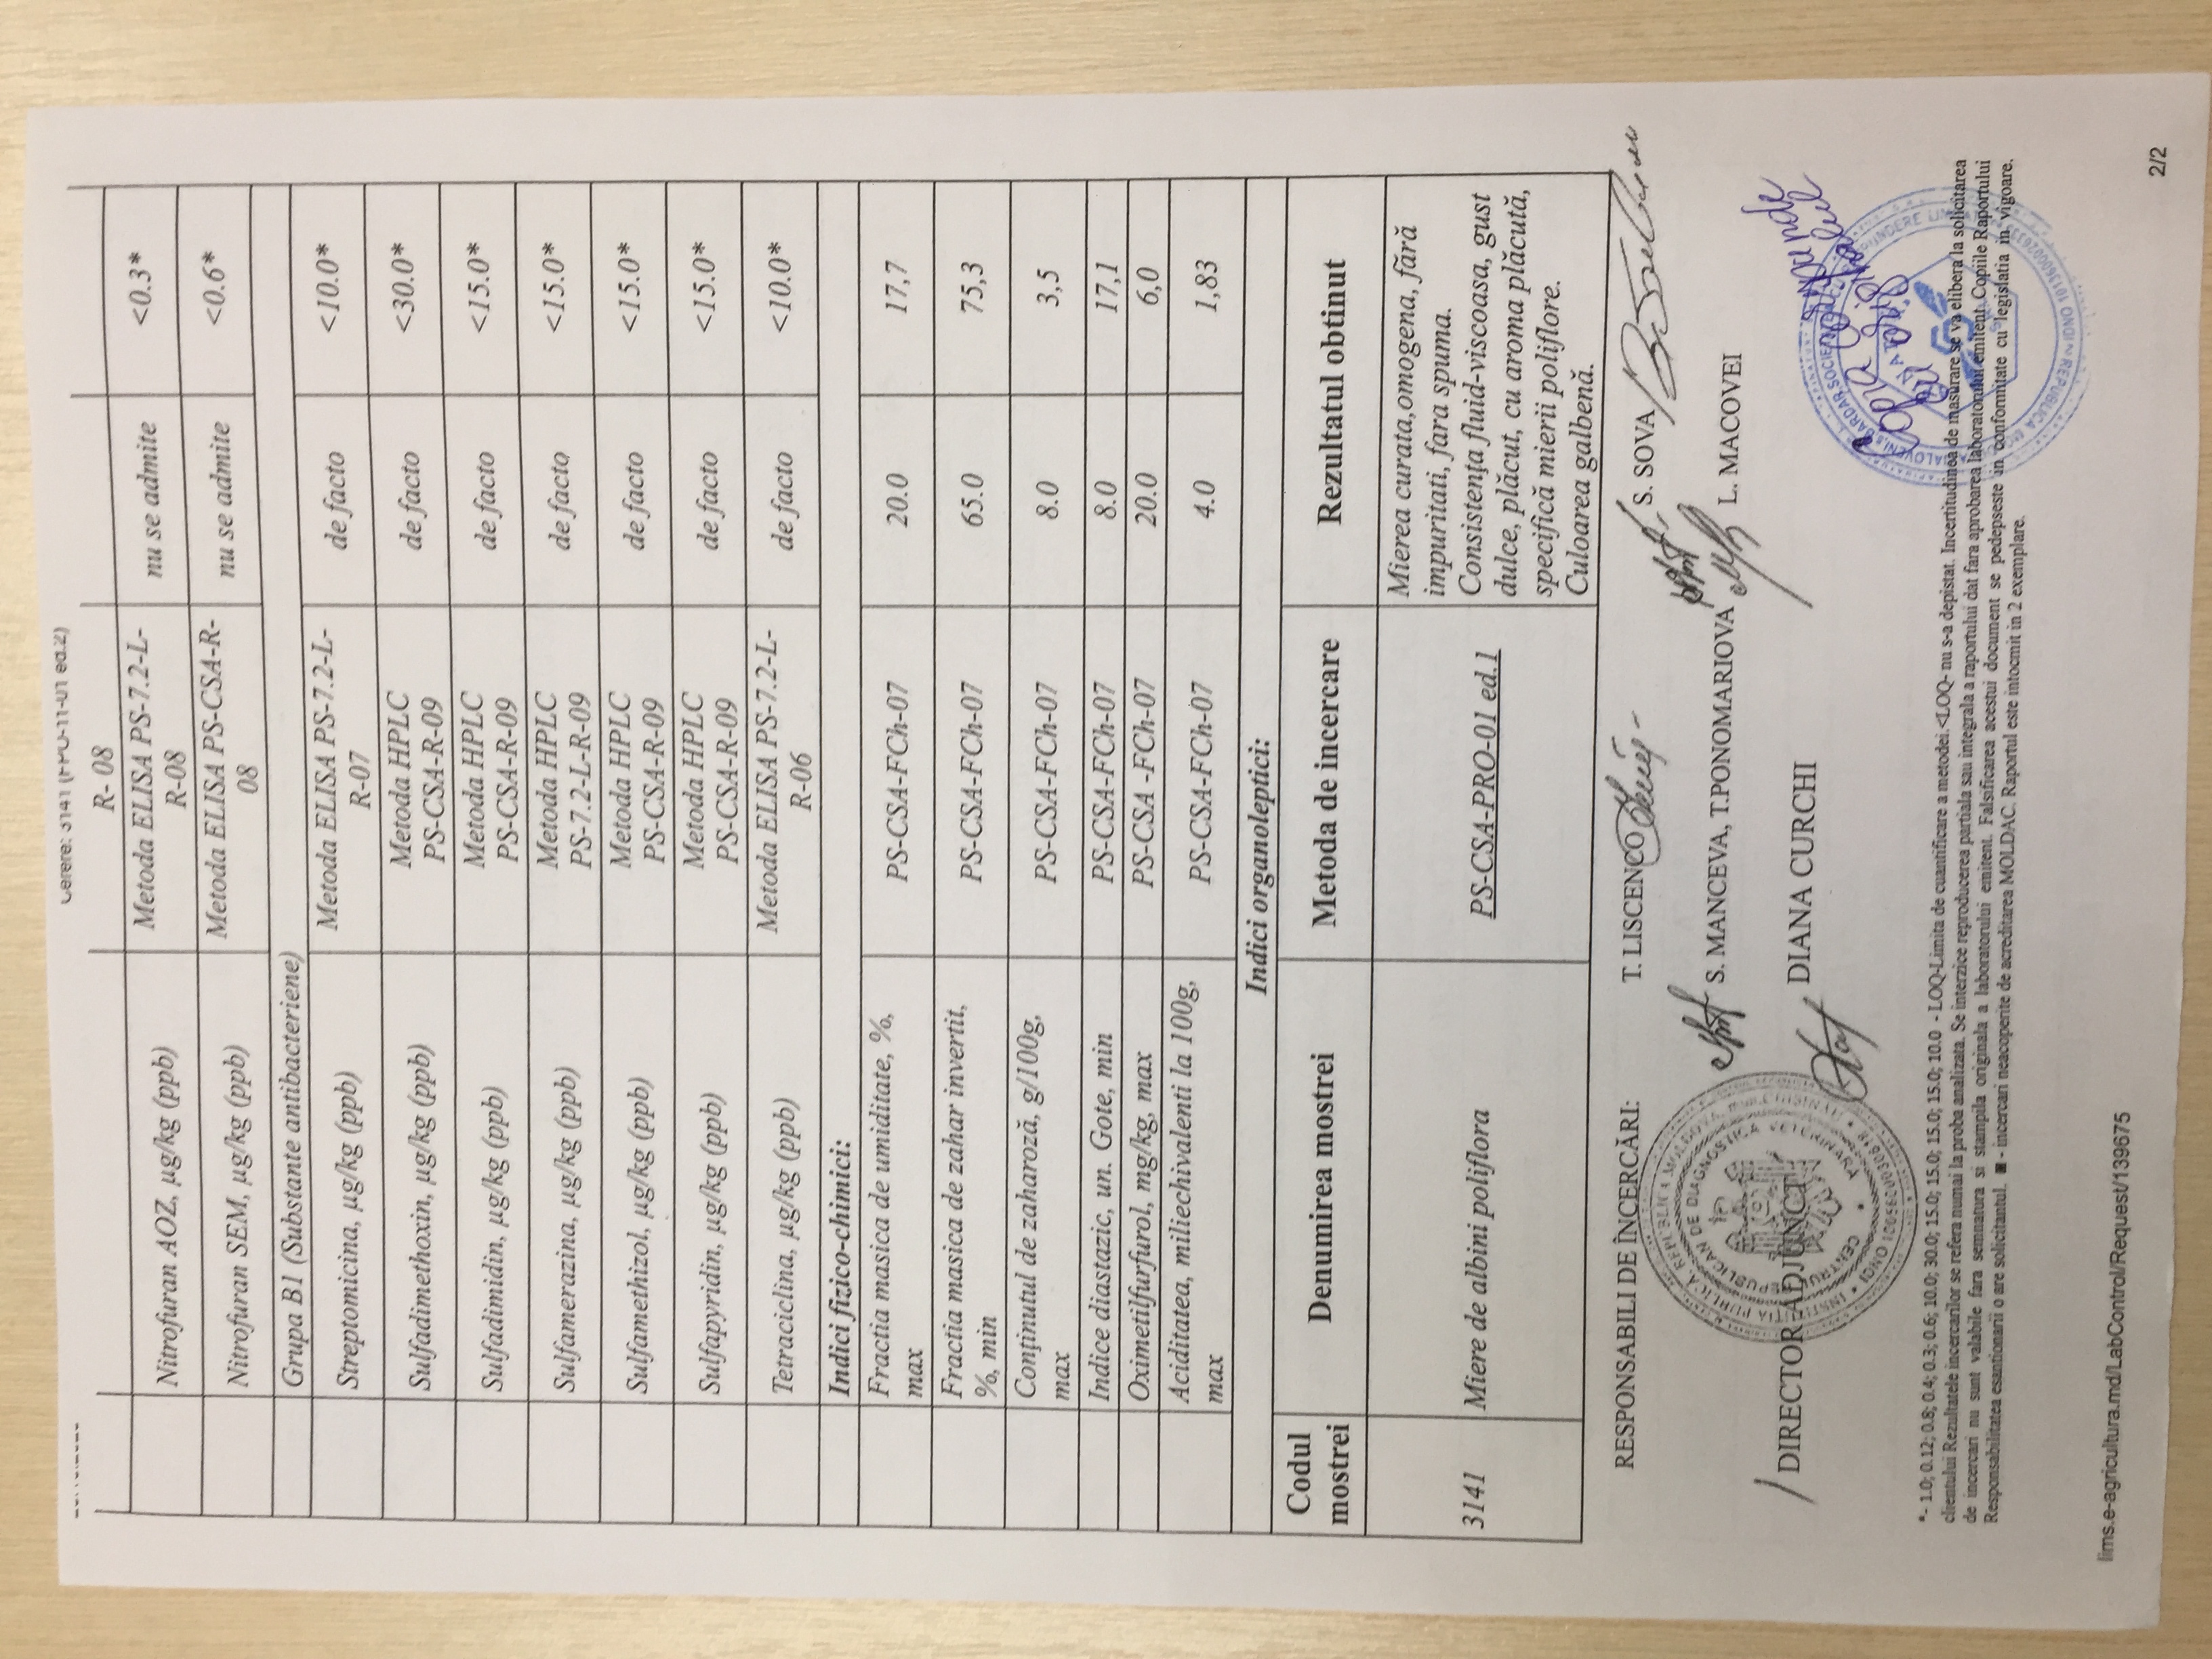 Cerere: 3141
R- 08
Nitrofuran AOZ, µg/kg (ppb) Metoda ELISA PS-7.2-L-R-08 nu se admite <0.3*
Nitrofuran SEM, µg/kg (ppb) Metoda ELISA PS-CSA-R-08 nu se admite <0.6*
Grupa B1 (Substante antibacteriene)
Streptomicina, µg/kg (ppb) Metoda ELISA PS-7.2-L-R-07 de facto <10.0*
Sulfadimethoxin, µg/kg (ppb) Metoda HPLC PS-CSA-R-09 de facto <30.0*
Sulfadimidin, µg/kg (ppb) Metoda HPLC PS-CSA-R-09 de facto <15.0*
Sulfamerazina, µg/kg (ppb) Metoda HPLC PS-7.2-L-R-09 de facto <15.0*
Sulfamethizol, µg/kg (ppb) Metoda HPLC PS-CSA-R-09 de facto <15.0*
Sulfapyridin, µg/kg (ppb) Metoda HPLC PS-CSA-R-09 de facto <15.0*
Tetraciclina, µg/kg (ppb) Metoda ELISA PS-7.2-L-R-06 de facto <10.0*
Indici fizico-chimici:
Fractia masica de umiditate, %, max PS-CSA-FCh-07 20.0 17,7
Fractia masica de zahar invertit, %, min PS-CSA-FCh-07 65.0 75,3
Conţinutul de zaharoză, g/100g, max PS-CSA-FCh-07 8.0 3,5
Indice diastazic, un. Gote, min PS-CSA-FCh-07 8.0 17,1
Oximetilfurfurol, mg/kg, max PS-CSA -FCh-07 20.0 6,0
Aciditatea, miliechivalenti la 100g, max PS-CSA-FCh-07 4.0 1,83
Indici organoleptici:
Codul mostrei Denumirea mostrei Metoda de incercare Rezultatul obtinut
3141 Miere de albini poliflora PS-CSA-PRO-01 ed.1 Mierea curata,omogena, fără
impuritati, fara spuma.
Consistenţa fluid-viscoasa, gust
dulce, plăcut, cu aroma plăcută,
specifică mierii poliflore.
Culoarea galbenă.
RESPONSABILI DE ÎNCERCĂRI: T. LISCENCO S. SOVA
S. MANCEVA, T.PONOMARIOVA L. MACOVEI
DIRECTOR ADJUNCT DIANA CURCHI
*- 1.0; 0.12; 0.8; 0.4; 0.3; 0.6; 10.0; 30.0; 15.0; 15.0; 15.0; 15.0; 10.0 - LOQ-Limita de cuantificare a metodei.<LOQ- nu s-a depistat. Incertitudinea de masurare se va elibera la solicitarea
clientului Rezultatele incercarilor se refera numai la proba analizata. Se interzice reproducerea partiala sau integrala a raportului dat fara aprobarea laboratorului emitent.Copiile Raportului
de incercari nu sunt valabile fara semnatura si stampila originala a laboratorului emitent. Falsificarea acestui document se pedepseste in conformitate cu legislatia in vigoare.
Responsabilitatea esantionarii o are solicitantul. ■ - incercari neacoperite de acreditarea MOLDAC. Raportul este intocmit in 2 exemplare.
lims.e-agricultura.md/LabControl/Request/139675 2/2